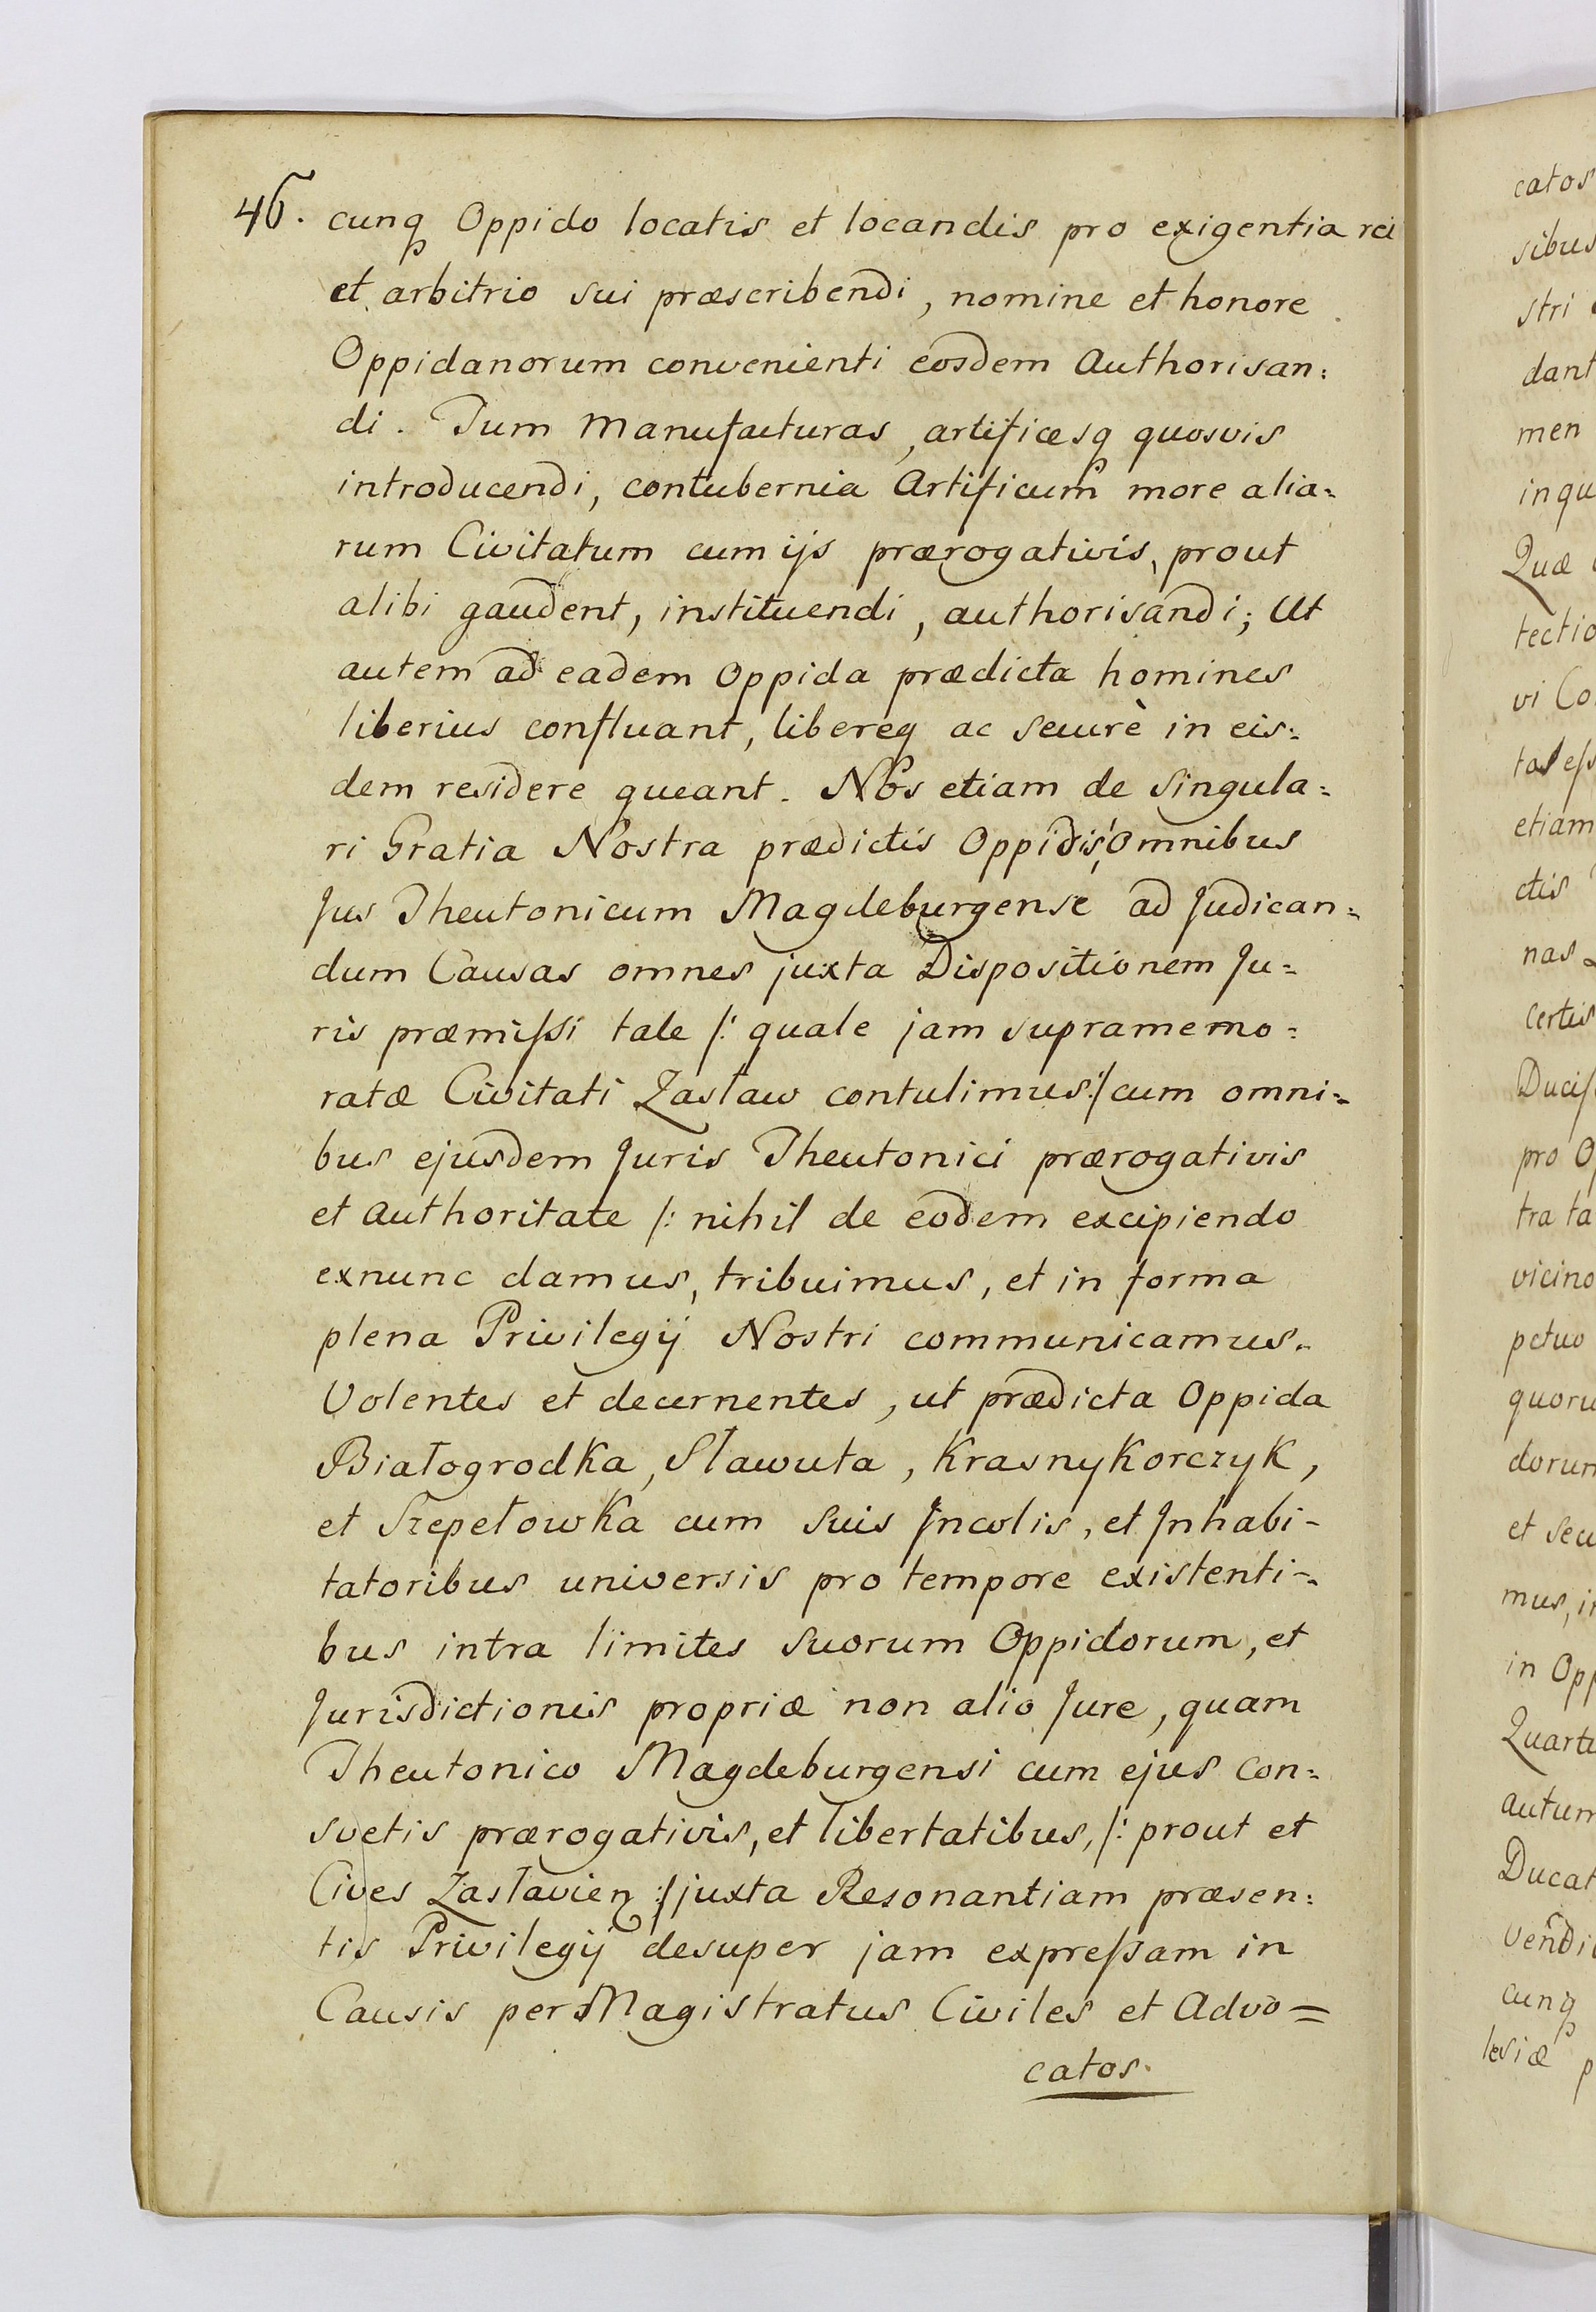 46. cunq Oppido locatis et locandis pro exigentia rei
et arbitrio sui præscribendi, nomine et honore
Oppidanorum convenienti eosdem Authorisan:
di. Tum Manufacturas, artificesq quosvis
introducendi, contubernia Artificum more alia=
rum Civitatum cum ijs prærogativis, prout
alibi gaudent, instituendi, authorisandi; Ut
autem ad eadem Oppida prædicta homines
liberius confluant, libereq ac securè in eis:
dem residere queant. Nos etiam de singula=
ri Gratia Nostra prædictis Oppidis, Omnibus
Jus Theutonicum Magdeburgense ad Judican=
dum Causas omnes juxta Dispositionem Ju=
ris præmiſsi tale /: quale jam supramemo=
ratæ Civitati Zasław contulimus :/ cum omni=
bus ejusdem Juris Theutonici prærogativis
et Authoritate /: nihil de eodem excipiendo
exnunc damus, tribuimus, et in forma
plena Privilegij Nostri communicamus.
Volentes et decernentes, ut prædicta Oppida
Białogrodka, Sławuta, Krasnykorczyk,
et Szepetowka cum suis Incolis, et Inhabi-
tatoribus universis pro tempore existenti=
bus intra limites suorum Oppidorum, et
Jurisdictionis propriæ non alio Jure, quam
Theutonico Magdeburgensi cum ejus con=
svetis prærogativis, et libertatibus, /: prout et
Cives Zasłavien :/ juxta Resonantiam præsen:
tis Privilegij desuper jam expreſsam in
Causis per Magistratus Civiles et Advo=
catos.
catos
sibus
stri
dant
men
inqu
Quæ
tectio
vi Co
etiam
ctis
nas
certis
pro O
tra ta
vicino
petuo
quoru
dorum
et secu
mus, i
in Opp
Quart
autum
Ducat
Vendi
cunq
lesiæ p